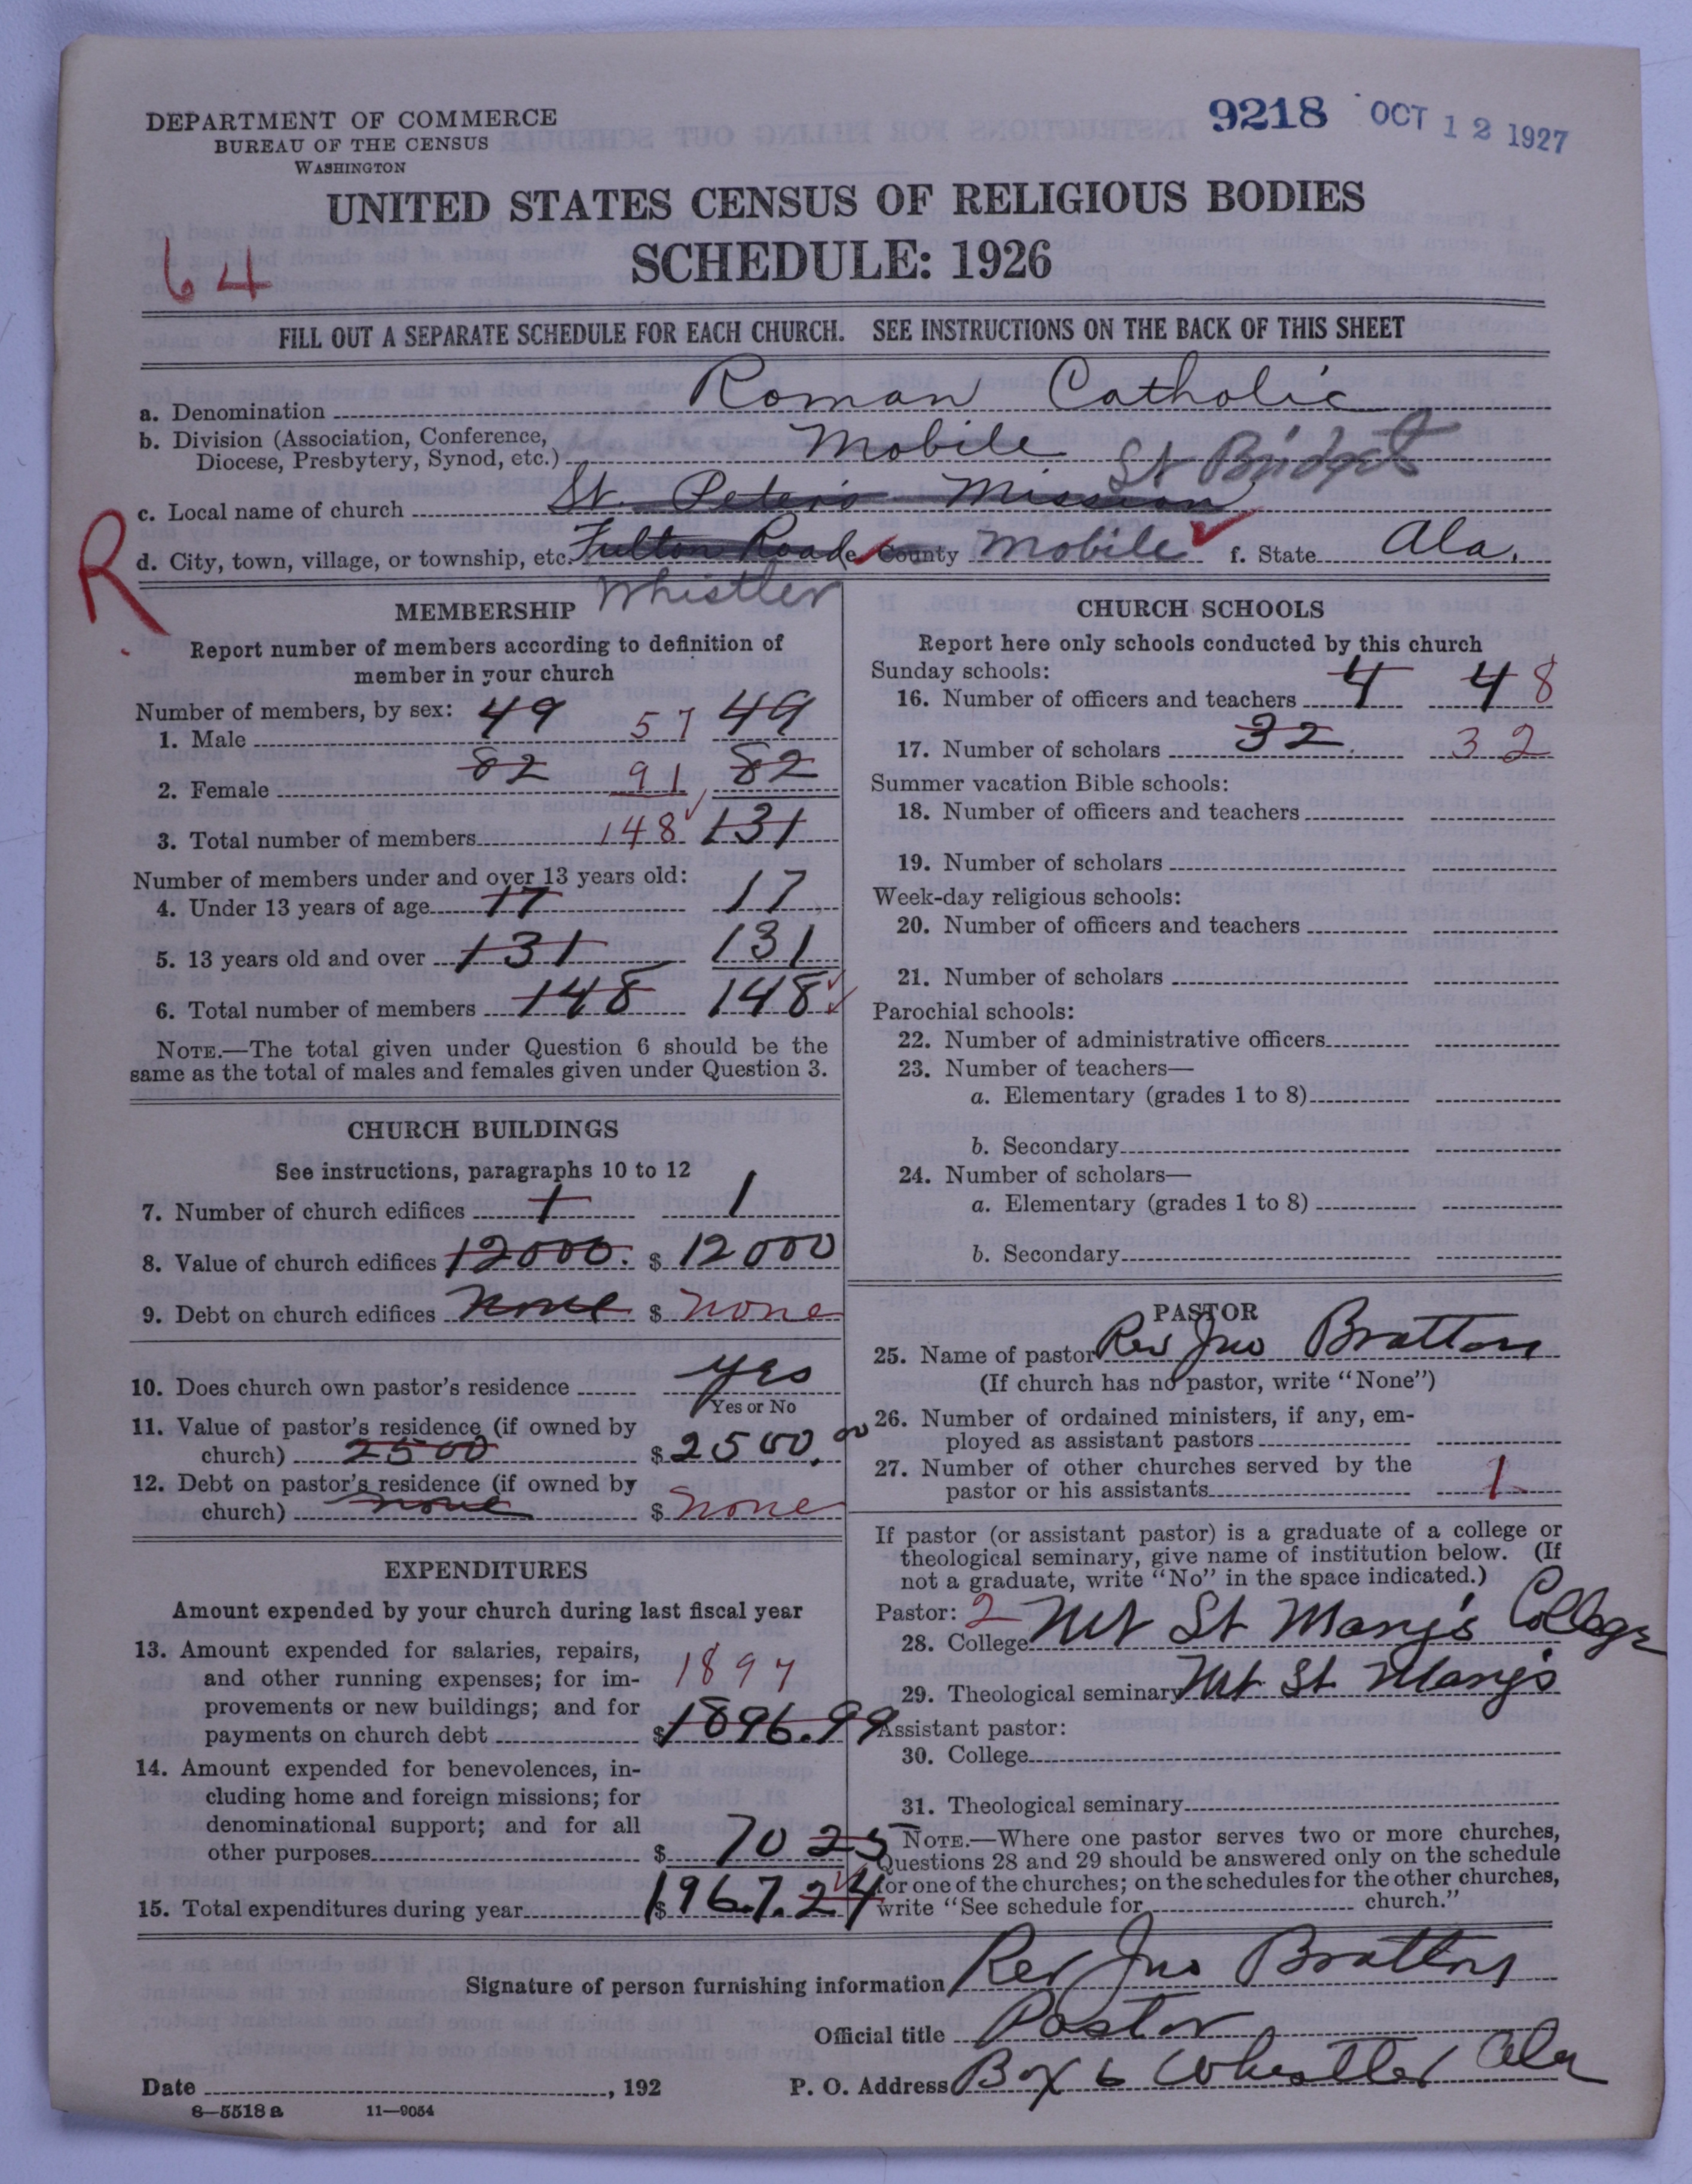 DEPARTMENT OF COMMERCE
BUREAU OF THE CENSUS
WASHINGTON
9218 OCT 12 1927
UNITED STATES CENSUS OF RELIGIOUS BODIES
SCHEDULE: 1926
64
FILL OUT A SEPARATE SCHEDULE FOR EACH CHURCH. SEE INSTRUCTIONS ON THE BACK OF THIS SHEET
a. Denomination Roman Catholic
b. Division (Association, Conference, Diocese, Presbytery, Synod, etc.) Mobile
St Bridget
c. Local name of church St. Peter's Mission
R
d. City, town, village, or township, etc. Fulton Road e. County Mobile f. State Ala.
Whistler
MEMBERSHIP
Report number of members according to definition of
member in your church
Number of members, by sex:
1. Male 49 57 49
2. Female 82 91 82
3. Total number of members 148 131
Number of members under and over 13 years old:
4. Under 13 years of age 17 17
5. 13 years old and over 131 131
6. Total number of members 148 148
NOTE.—The total given under Question 6 should be the
same as the total of males and females given under Question 3.
CHURCH BUILDINGS
See instructions, paragraphs 10 to 12
7. Number of church edifices 1 1
8. Value of church edifices 12000. $ 12000
9. Debt on church edifices none $ none
10. Does church own pastor's residence yes
Yes or No
11. Value of pastor's residence (if owned by
church) 2500 $ 2500.00
12. Debt on pastor's residence (if owned by
church) none $ none
EXPENDITURES
Amount expended by your church during last fiscal year
13. Amount expended for salaries, repairs,
and other running expenses; for im-
provements or new buildings; and for
1897
payments on church debt $ 1896.99
14. Amount expended for benevolences, in-
cluding home and foreign missions; for
denominational support; and for all
other purposes $ 70 25
15. Total expenditures during year $ 1967.24
CHURCH SCHOOLS
Report here only schools conducted by this church
Sunday schools:
16. Number of officers and teachers 4 4 8
17. Number of scholars 32. 32
Summer vacation Bible schools:
18. Number of officers and teachers
19. Number of scholars
Week-day religious schools:
20. Number of officers and teachers
21. Number of scholars
Parochial schools:
22. Number of administrative officers
23. Number of teachers—
a. Elementary (grades 1 to 8)
b. Secondary
24. Number of scholars—
a. Elementary (grades 1 to 8)
b. Secondary
PASTOR
25. Name of pastor Rev Jno Bratton
(If church has no pastor, write "None")
26. Number of ordained ministers, if any, em-
ployed as assistant pastors
27. Number of other churches served by the
pastor or his assistants 1
If pastor (or assistant pastor) is a graduate of a college or
theological seminary, give name of institution below. (If
not a graduate, write "No" in the space indicated.)
Pastor: 2
28. College Mt St Mary's College
29. Theological seminary Mt St Mary's
Assistant pastor:
30. College
31. Theological seminary
NOTE.—Where one pastor serves two or more churches,
Questions 28 and 29 should be answered only on the schedule
for one of the churches; on the schedules for the other churches,
write "See schedule for church."
Signature of person furnishing information Rev Jno Bratton
Official title Pastor
Date , 192 P. O. Address Box 6 Whistler Ala
8—5518 a 11—9054